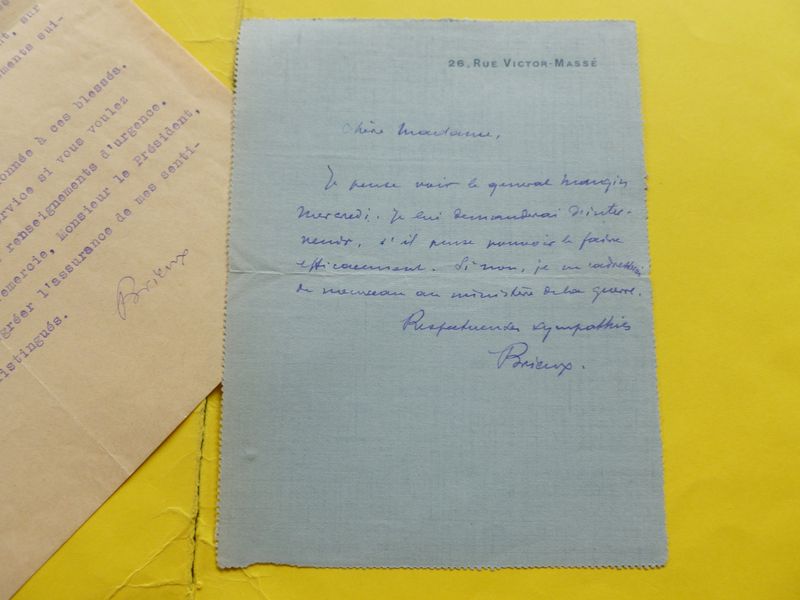 nt, sur
ments sui-
onnée à ces blessés.
ervice si vous voulez
renseignements d'urgence.
emercie, Monsieur le Président,
gréer l'assurance de mes senti-
istingués.
Brieux
26, RUE VICTOR-MASSÉ
Chère Madame,
Je pense voir le general Mangin
mercredi. Je lui demanderai d'inter-
venir, s'il pense pouvoir le faire
efficacement. Si non, je m'adresserai
de nouveau au ministère de la guerre.
Respectueuses sympathies
Brieux.